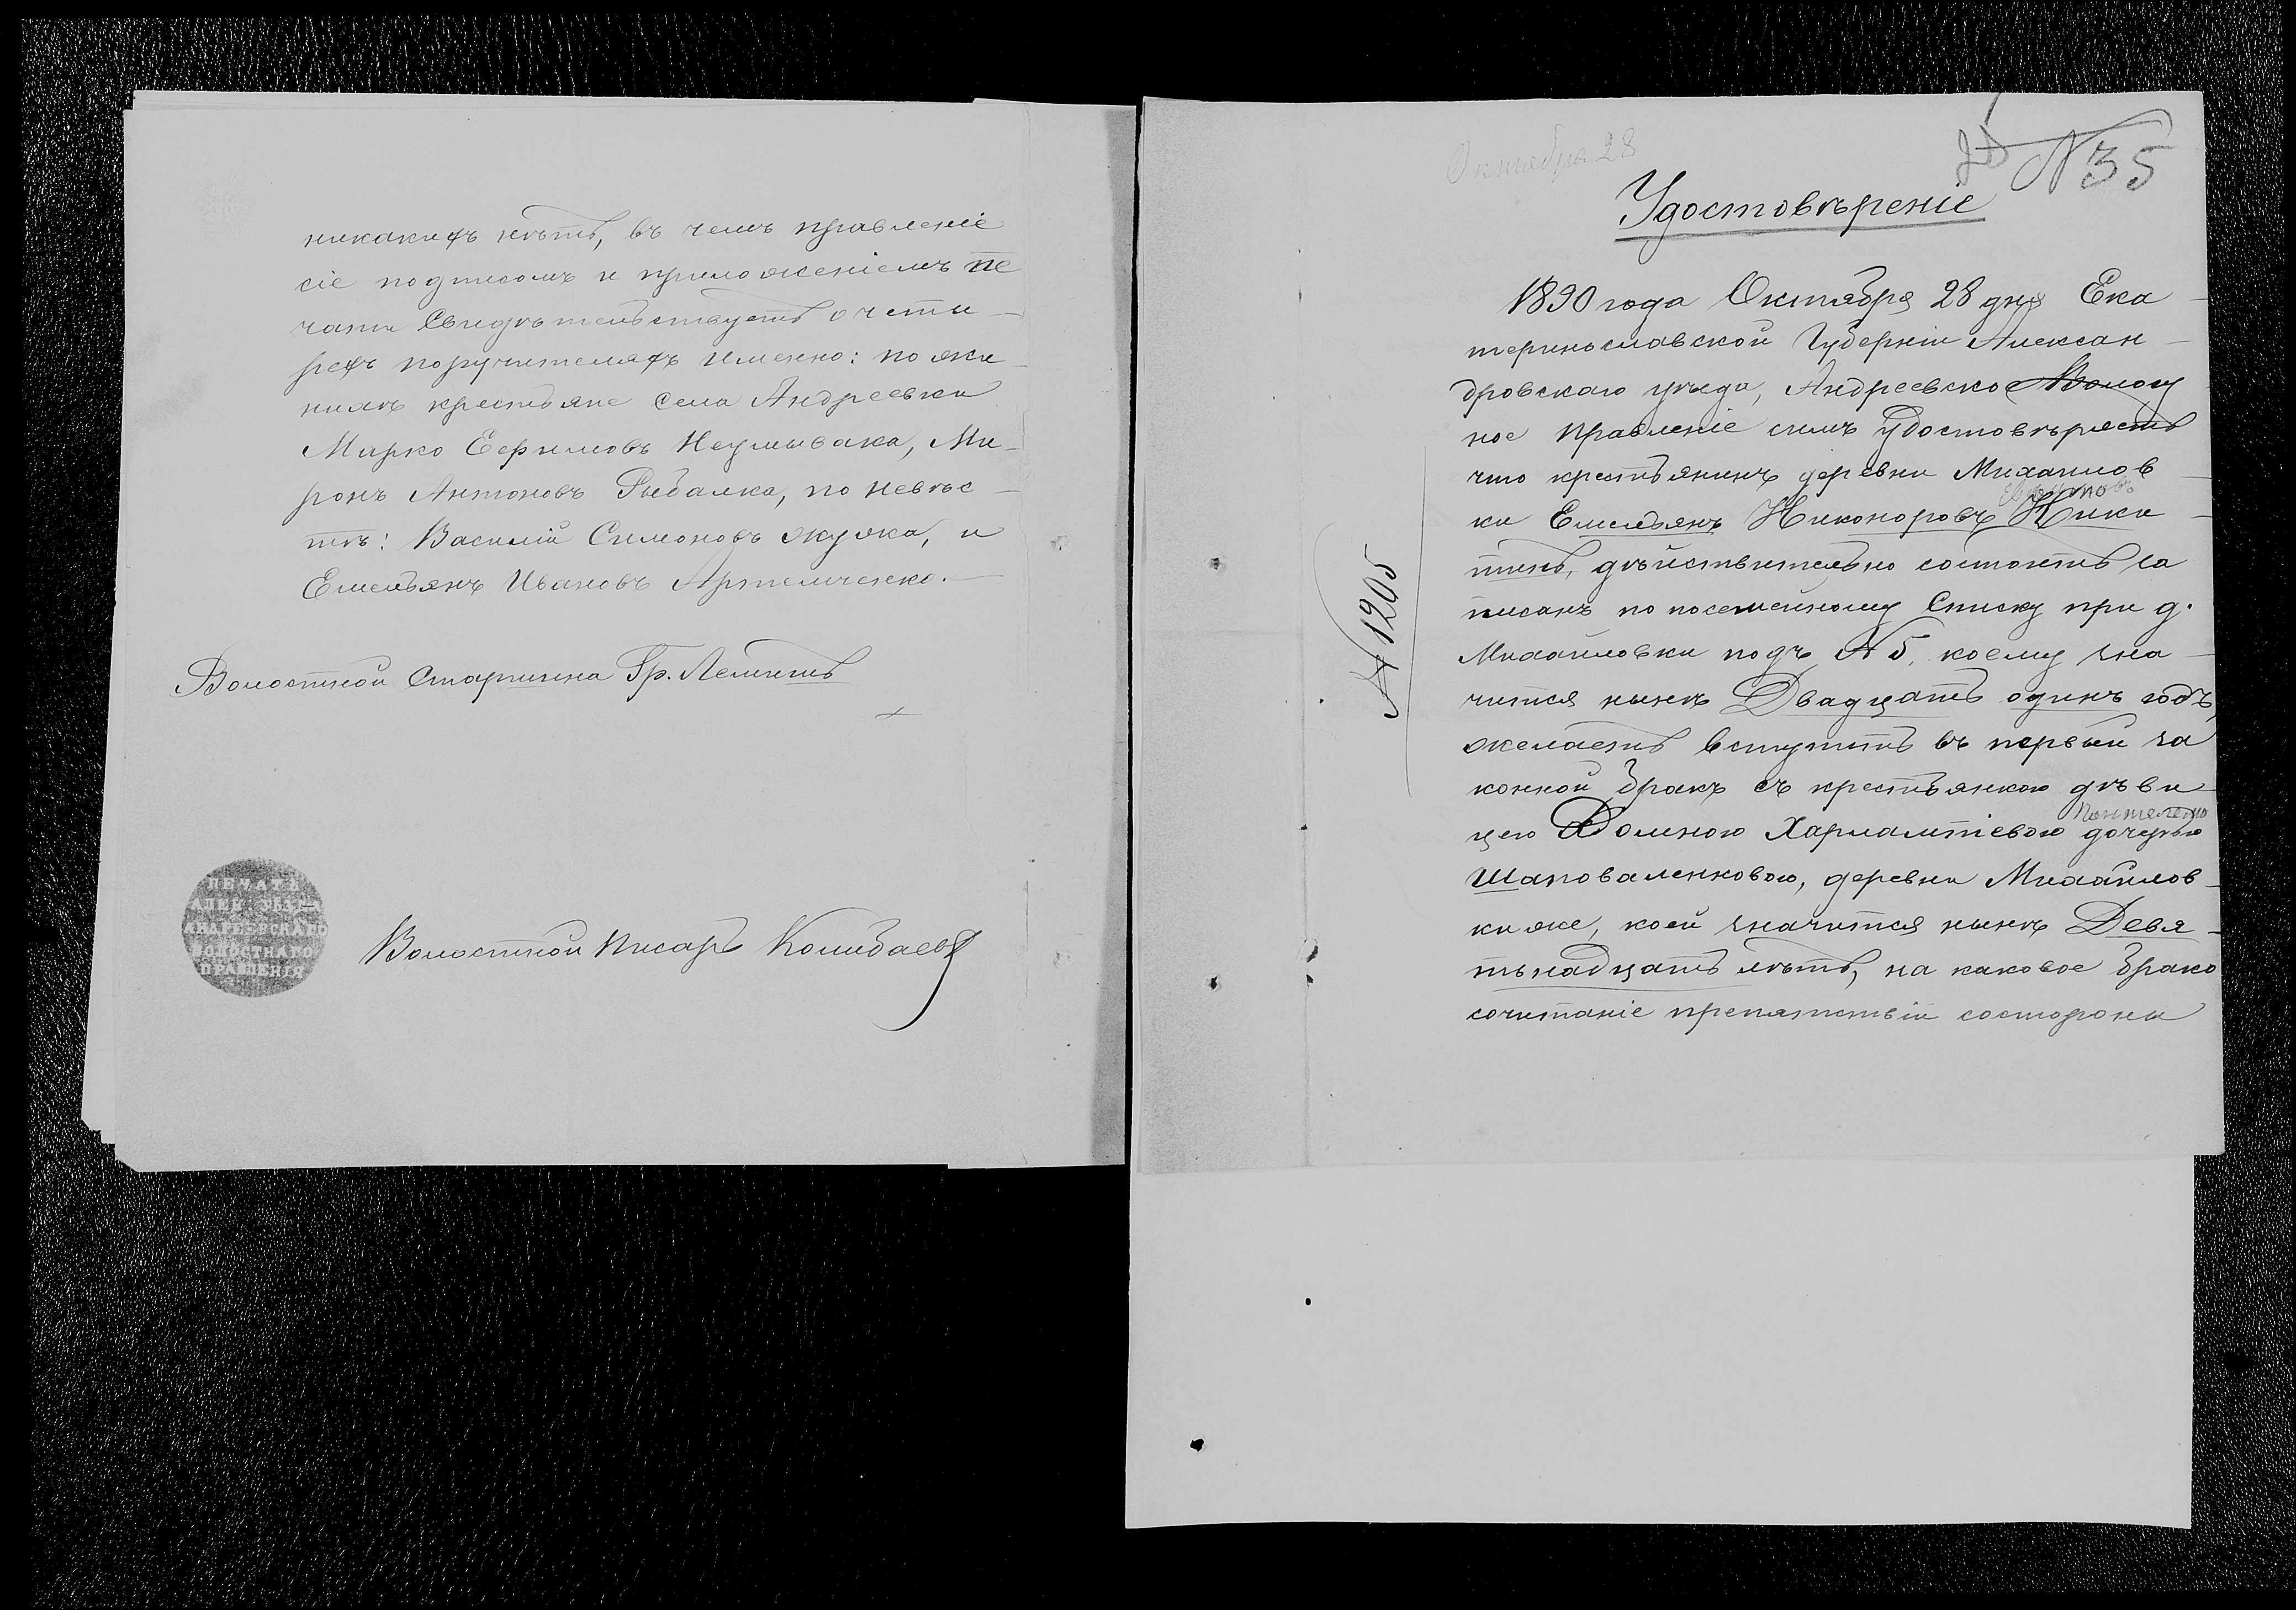 никакихъ нѣтъ, въ чемъ правленіе
сіе подписомъ и приложеніемъ пе
чати Свидѣтельствуетъ о четы-
рехъ поручителяхъ именно: по же
нихѣ крестьяне села Андреевки
Марко Ефимовъ Неумывака, Ми-
ронъ Антоновъ Рыбалка, по невѣс-
тѣ: Василій Симоновъ Жужка, и
Емельянъ Ивановъ Артемченко.
Волостной старшина Гр. Лемишъ
ПЕЧАТЬ
АЛЕК. УѢЗДА
АНДРЕЕВСКАГО
ВОЛОСТНАГО
ПРАВЛЕНІЯ
Волостной Писарь
Октября 28
№ 35
Удостовѣреніе
№ 1205
1890 года Октября 28 дня Ека-
теринославской Губерніи Алексан-
дровскаго уѣзда, Андреевское Волост
ное Правленіе симъ удостовѣряетъ
что крестьянинъ деревни Михайлов-
ки Емельянъ Никоноровъ Ники-
тинъ, дѣйствительно состоитъ за
писанъ по посемейному Списку при д.
Михайловки подъ № 5, коему зна-
чится нынѣ Двадцать одинъ годъ,
желаетъ вступить въ первый за
конной бракъ съ крестьянкою дѣви-
цею Домною Харлампіевою дочерью
Шаповаленковою, деревни Михайлов-
ки же, коей значится нынѣ Девя-
тьнадцать лѣтъ, на каковое брако
сочитаніе препятствій состороны